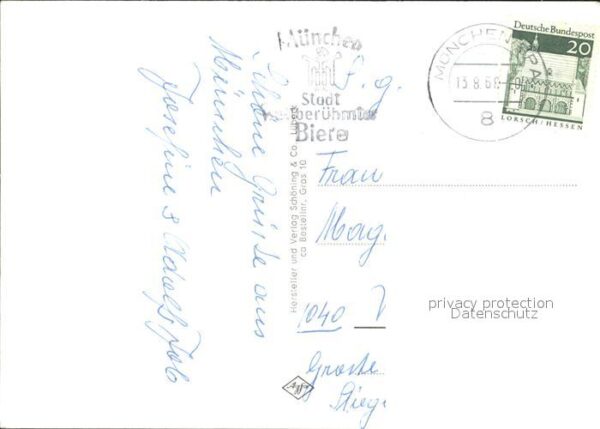 München
Stadt
berühmter
Biere
MÜNCHEN
13.8.68
8
Deutsche Bundespost
20
LORSCH/HESSEN
Schöne Grüsse aus
München
Josefine & Adolf
Hersteller und Verlag Schöning & Co., Lübeck
ca Bestellnr. Gras 10
S. g.
Frau
Mag.
1040
Grosse
privacy protection
Datenschutz
Agfa